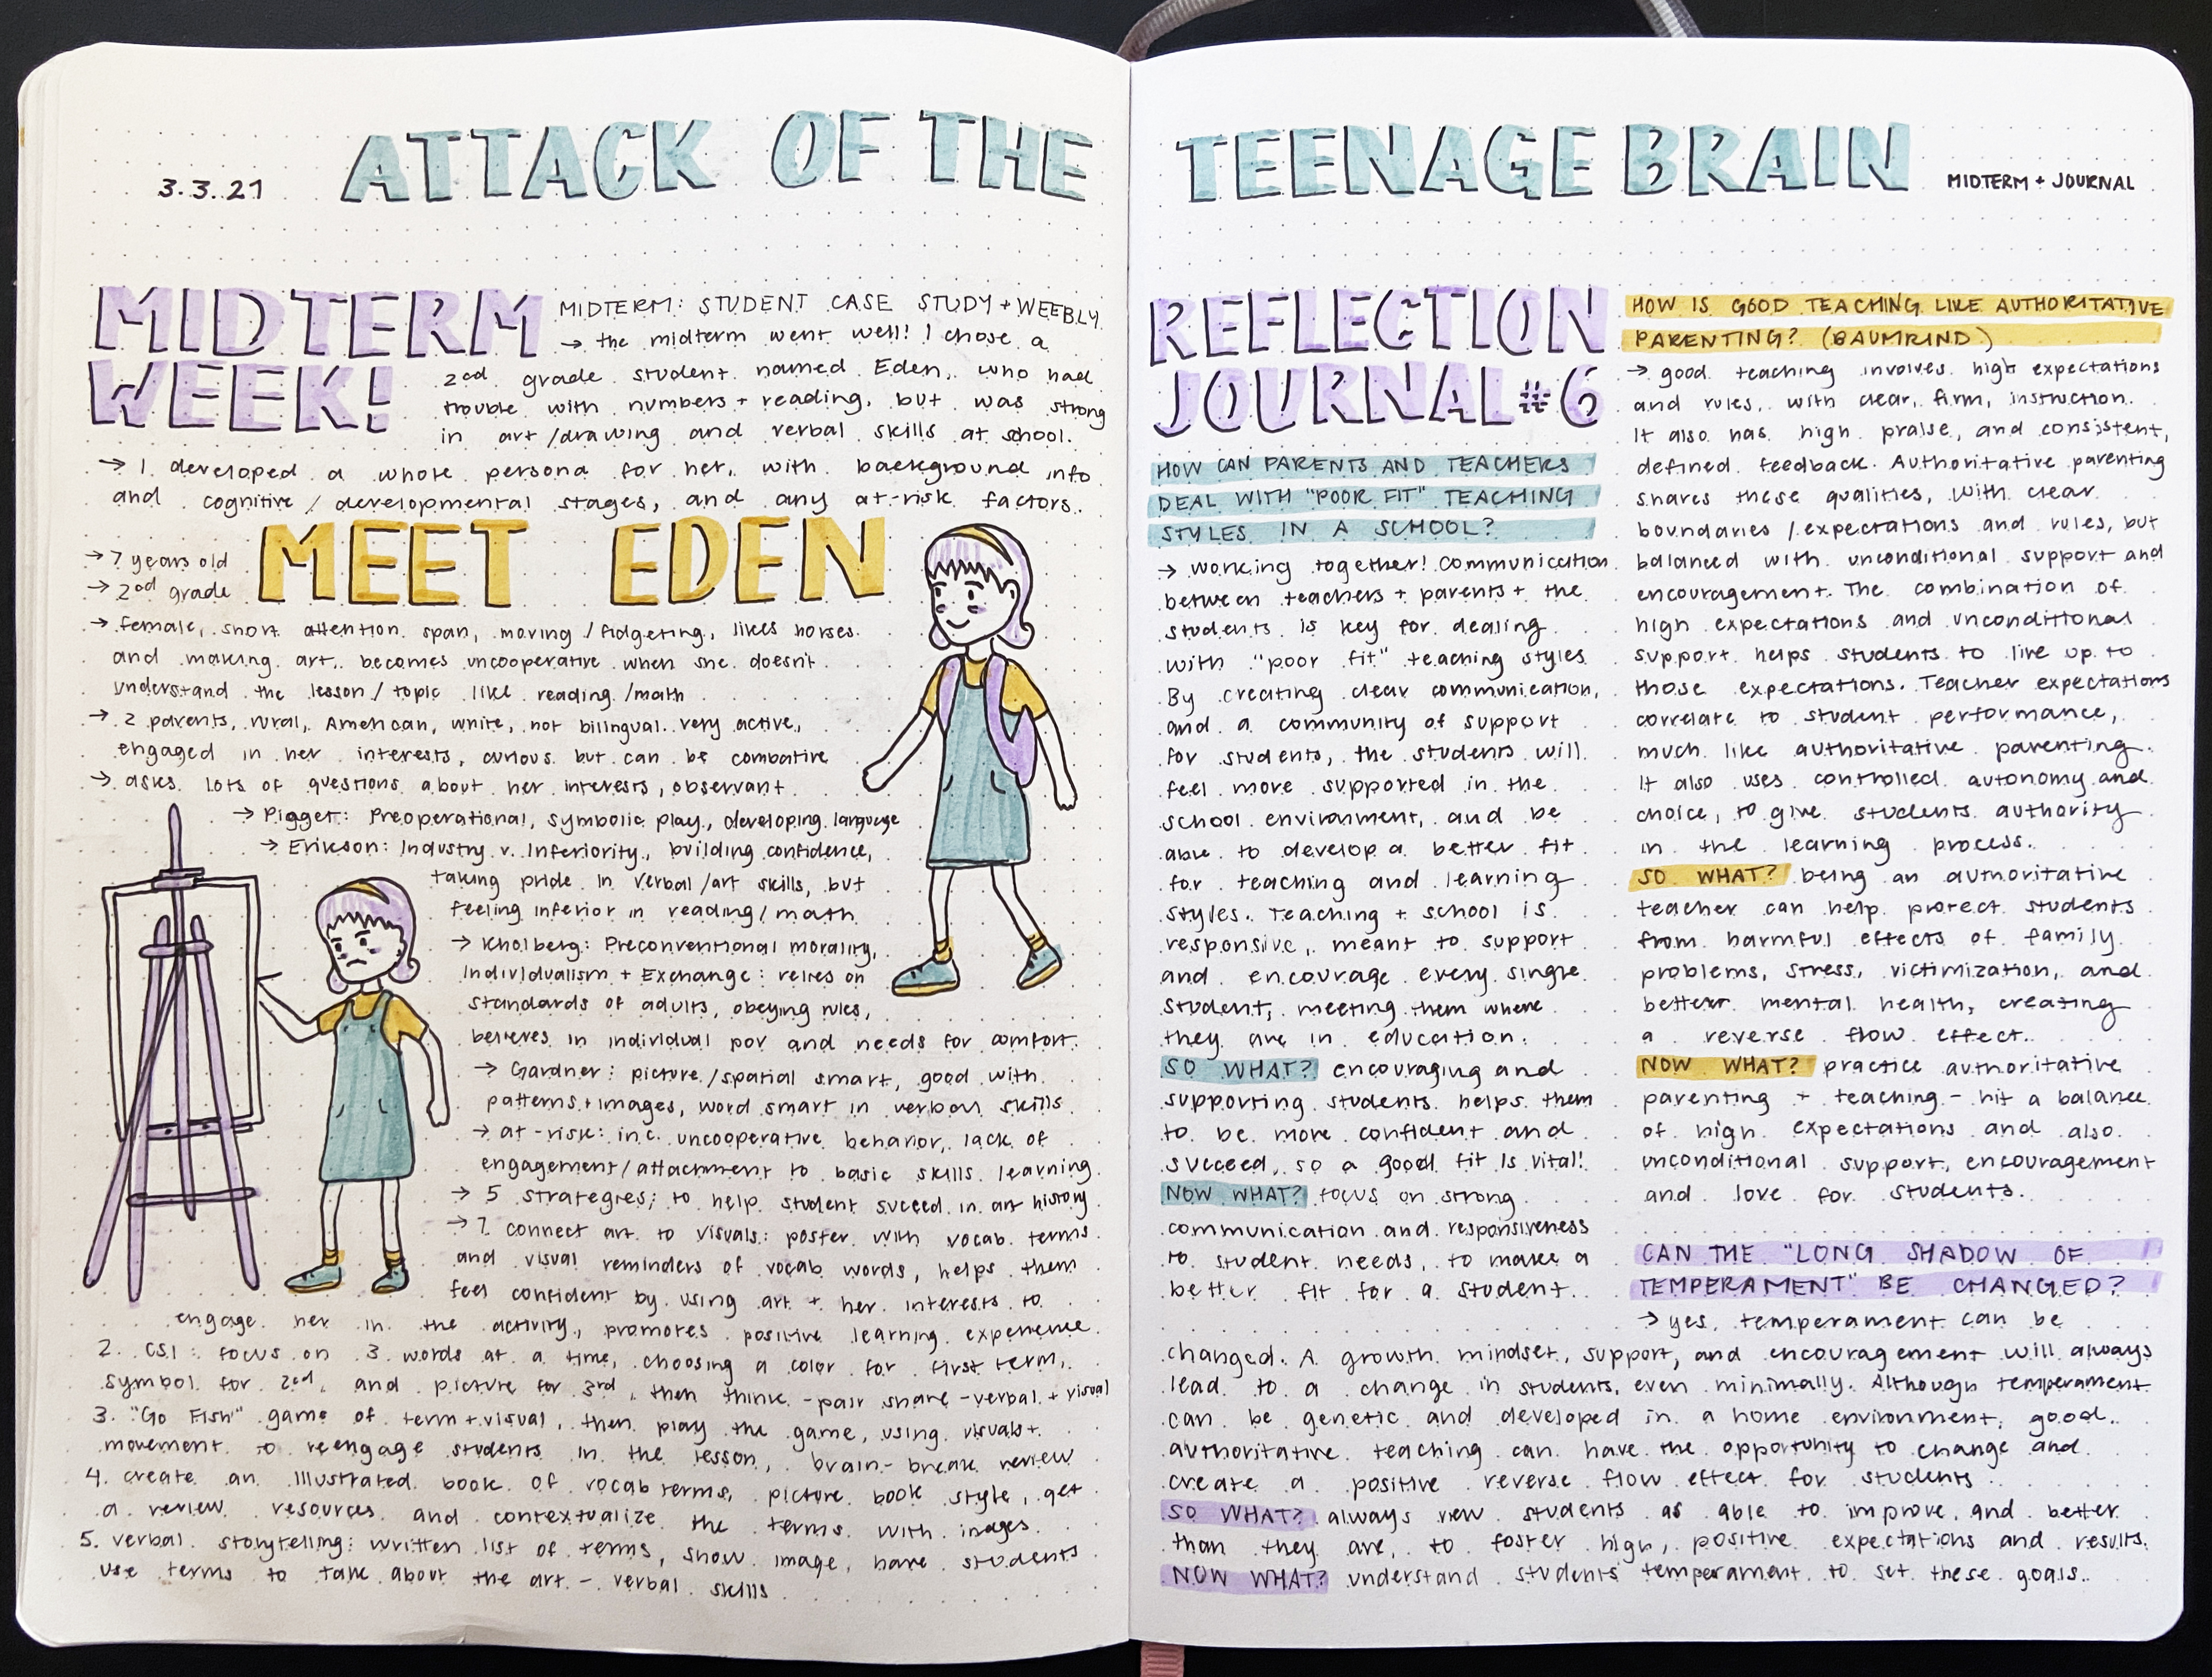 3.3.21
ATTACK OF THE
TEENAGE BRAIN
MIDTERM + JOURNAL
MIDTERM
WEEK!
MIDTERM: STUDENT CASE STUDY + WEEBLY
→ the midterm went well! I chose a
2nd grade student named Eden, who had
trouble with numbers + reading, but was strong
in art/drawing and verbal skills at school.
→ I developed a whole persona for her, with background info
and cognitive / developmental stages, and any at-risk factors.
MEET EDEN
→ 7 years old
→ 2nd grade
→ female, short attention span, moving / fidgeting, likes horses
and making art. becomes uncooperative when she doesn't
understand the lesson / topic like reading/math
→ 2 parents, rural, American, white, not bilingual. very active,
engaged in her interests, curious but can be combative
→ asks lots of questions about her interests, observant
→ Pigget: Preoperational, symbolic play, developing language
→ Erikson: Industry v. Inferiority, building confidence,
taking pride in verbal/art skills, but
feeling inferior in reading/math
→ Kholberg: Preconventional morality,
Individualism + Exchange: relies on
standards of adults, obeying rules,
believes in individual pov and needs for comfort.
→ Gardner: picture/spatial smart, good with
patterns + images, word smart in verbal skills
→ at-risk: inc. uncooperative behavior, lack of
engagement/attachment to basic skills learning
→ 5 strategies; to help student succeed in art history
→ 1. connect art to visuals: poster with vocab terms
and visual reminders of vocab words, helps them
feel confident by using art + her interests to
engage her in the activity, promotes positive learning experience
2. CSI: focus on 3 words at a time, choosing a color for first term,
symbol for 2nd, and picture for 3rd, then think-pair share - verbal + visual
3. "Go Fish" game of term + visual, then play the game, using visuals +
movement to reengage students in the lesson, brain-break review
4. create an illustrated book of vocab terms, picture book style, get
a review resources and contextualize the terms with images
5. verbal storytelling: written list of terms, show image, have students
use terms to talk about the art - verbal skills
REFLECTION
JOURNAL #6
HOW CAN PARENTS AND TEACHERS
DEAL WITH "POOR FIT" TEACHING
STYLES IN A SCHOOL?
→ working together! Communication
between teachers + parents + the
students is key for dealing
with "poor fit" teaching styles
By creating clear communication,
and a community of support
for students, the students will
feel more supported in the
school environment, and be
able to develop a better fit
for teaching and learning
styles. Teaching + school is
responsive, meant to support
and encourage every single
student, meeting them where
they are in education.
SO WHAT? encouraging and
supporting students helps them
to be more confident and
succeed, so a good fit is vital!
NOW WHAT? focus on strong
communication and responsiveness
to student needs, to make a
better fit for a student.
HOW IS GOOD TEACHING LIKE AUTHORITATIVE
PARENTING? (BAUMRIND)
→ good teaching involves high expectations
and rules, with clear, firm, instruction.
It also has high praise, and consistent,
defined feedback. Authoritative parenting
shares these qualities, with clear
boundaries / expectations and rules, but
balanced with unconditional support and
encouragement. The combination of
high expectations and unconditional
support helps students to live up to
those expectations. Teacher expectations
correlate to student performance,
much like authoritative parenting.
It also uses controlled autonomy and
choice, to give students authority
in the learning process.
SO WHAT? being an authoritative
teacher can help protect students
from harmful effects of family
problems, stress, victimization, and
better mental health, creating
a reverse flow effect.
NOW WHAT? practice authoritative
parenting + teaching - hit a balance
of high expectations and also
unconditional support, encouragement
and love for students.
CAN THE "LONG SHADOW OF
TEMPERAMENT" BE CHANGED?
→ yes, temperament can be
changed. A growth mindset, support, and encouragement will always
lead to a change in students, even minimally. Although temperament
can be genetic and developed in a home environment, good
authoritative teaching can have the opportunity to change and
create a positive reverse flow effect for students.
SO WHAT? always view students as able to improve and better
than they are, to foster high, positive expectations and results.
NOW WHAT? understand students' temperament to set these goals.